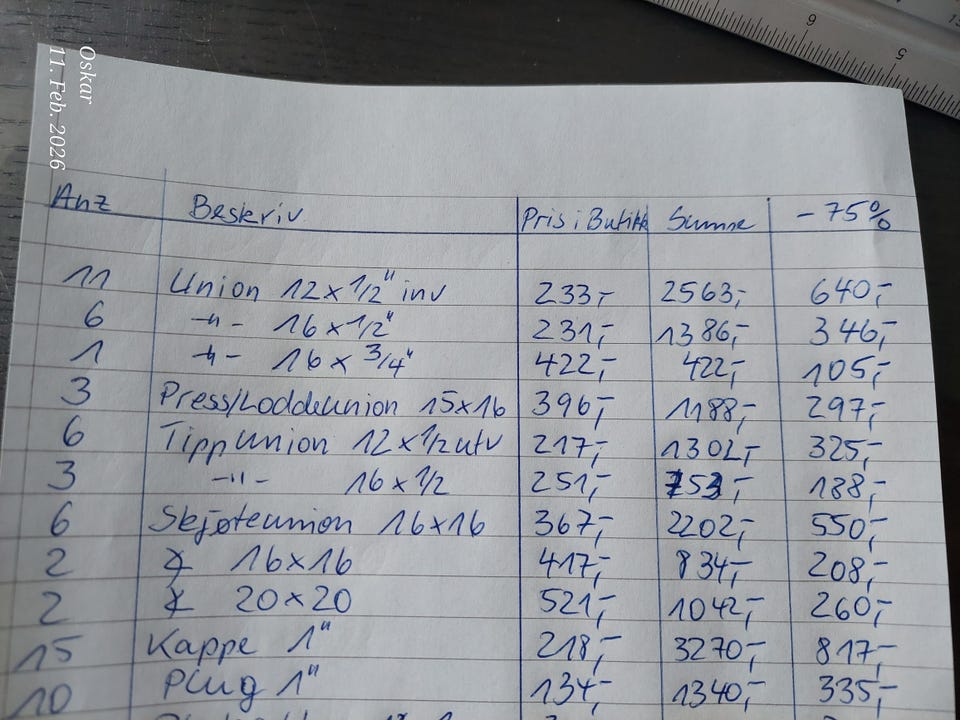 Oskar
11. Feb. 2026
6 5
Anz Beskriv Pris i Butikk Summe -75%
11 Union 12x1/2" inv 233,- 2563,- 640,-
6 -"- 16x1/2" 231,- 1386,- 346,-
1 -"- 16x3/4" 422,- 422,- 105,-
3 Press/Loddeunion 15x16 396,- 1188,- 297,-
6 Tippunion 12x1/2 utv 217,- 1302,- 325,-
3 -"- 16x1/2 251,- 753,- 188,-
6 Skjøteunion 16x16 367,- 2202,- 550,-
2 16x16 417,- 834,- 208,-
2 20x20 521,- 1042,- 260,-
15 Kappe 1" 218,- 3270,- 817,-
10 Plug 1" 134,- 1340,- 335,-